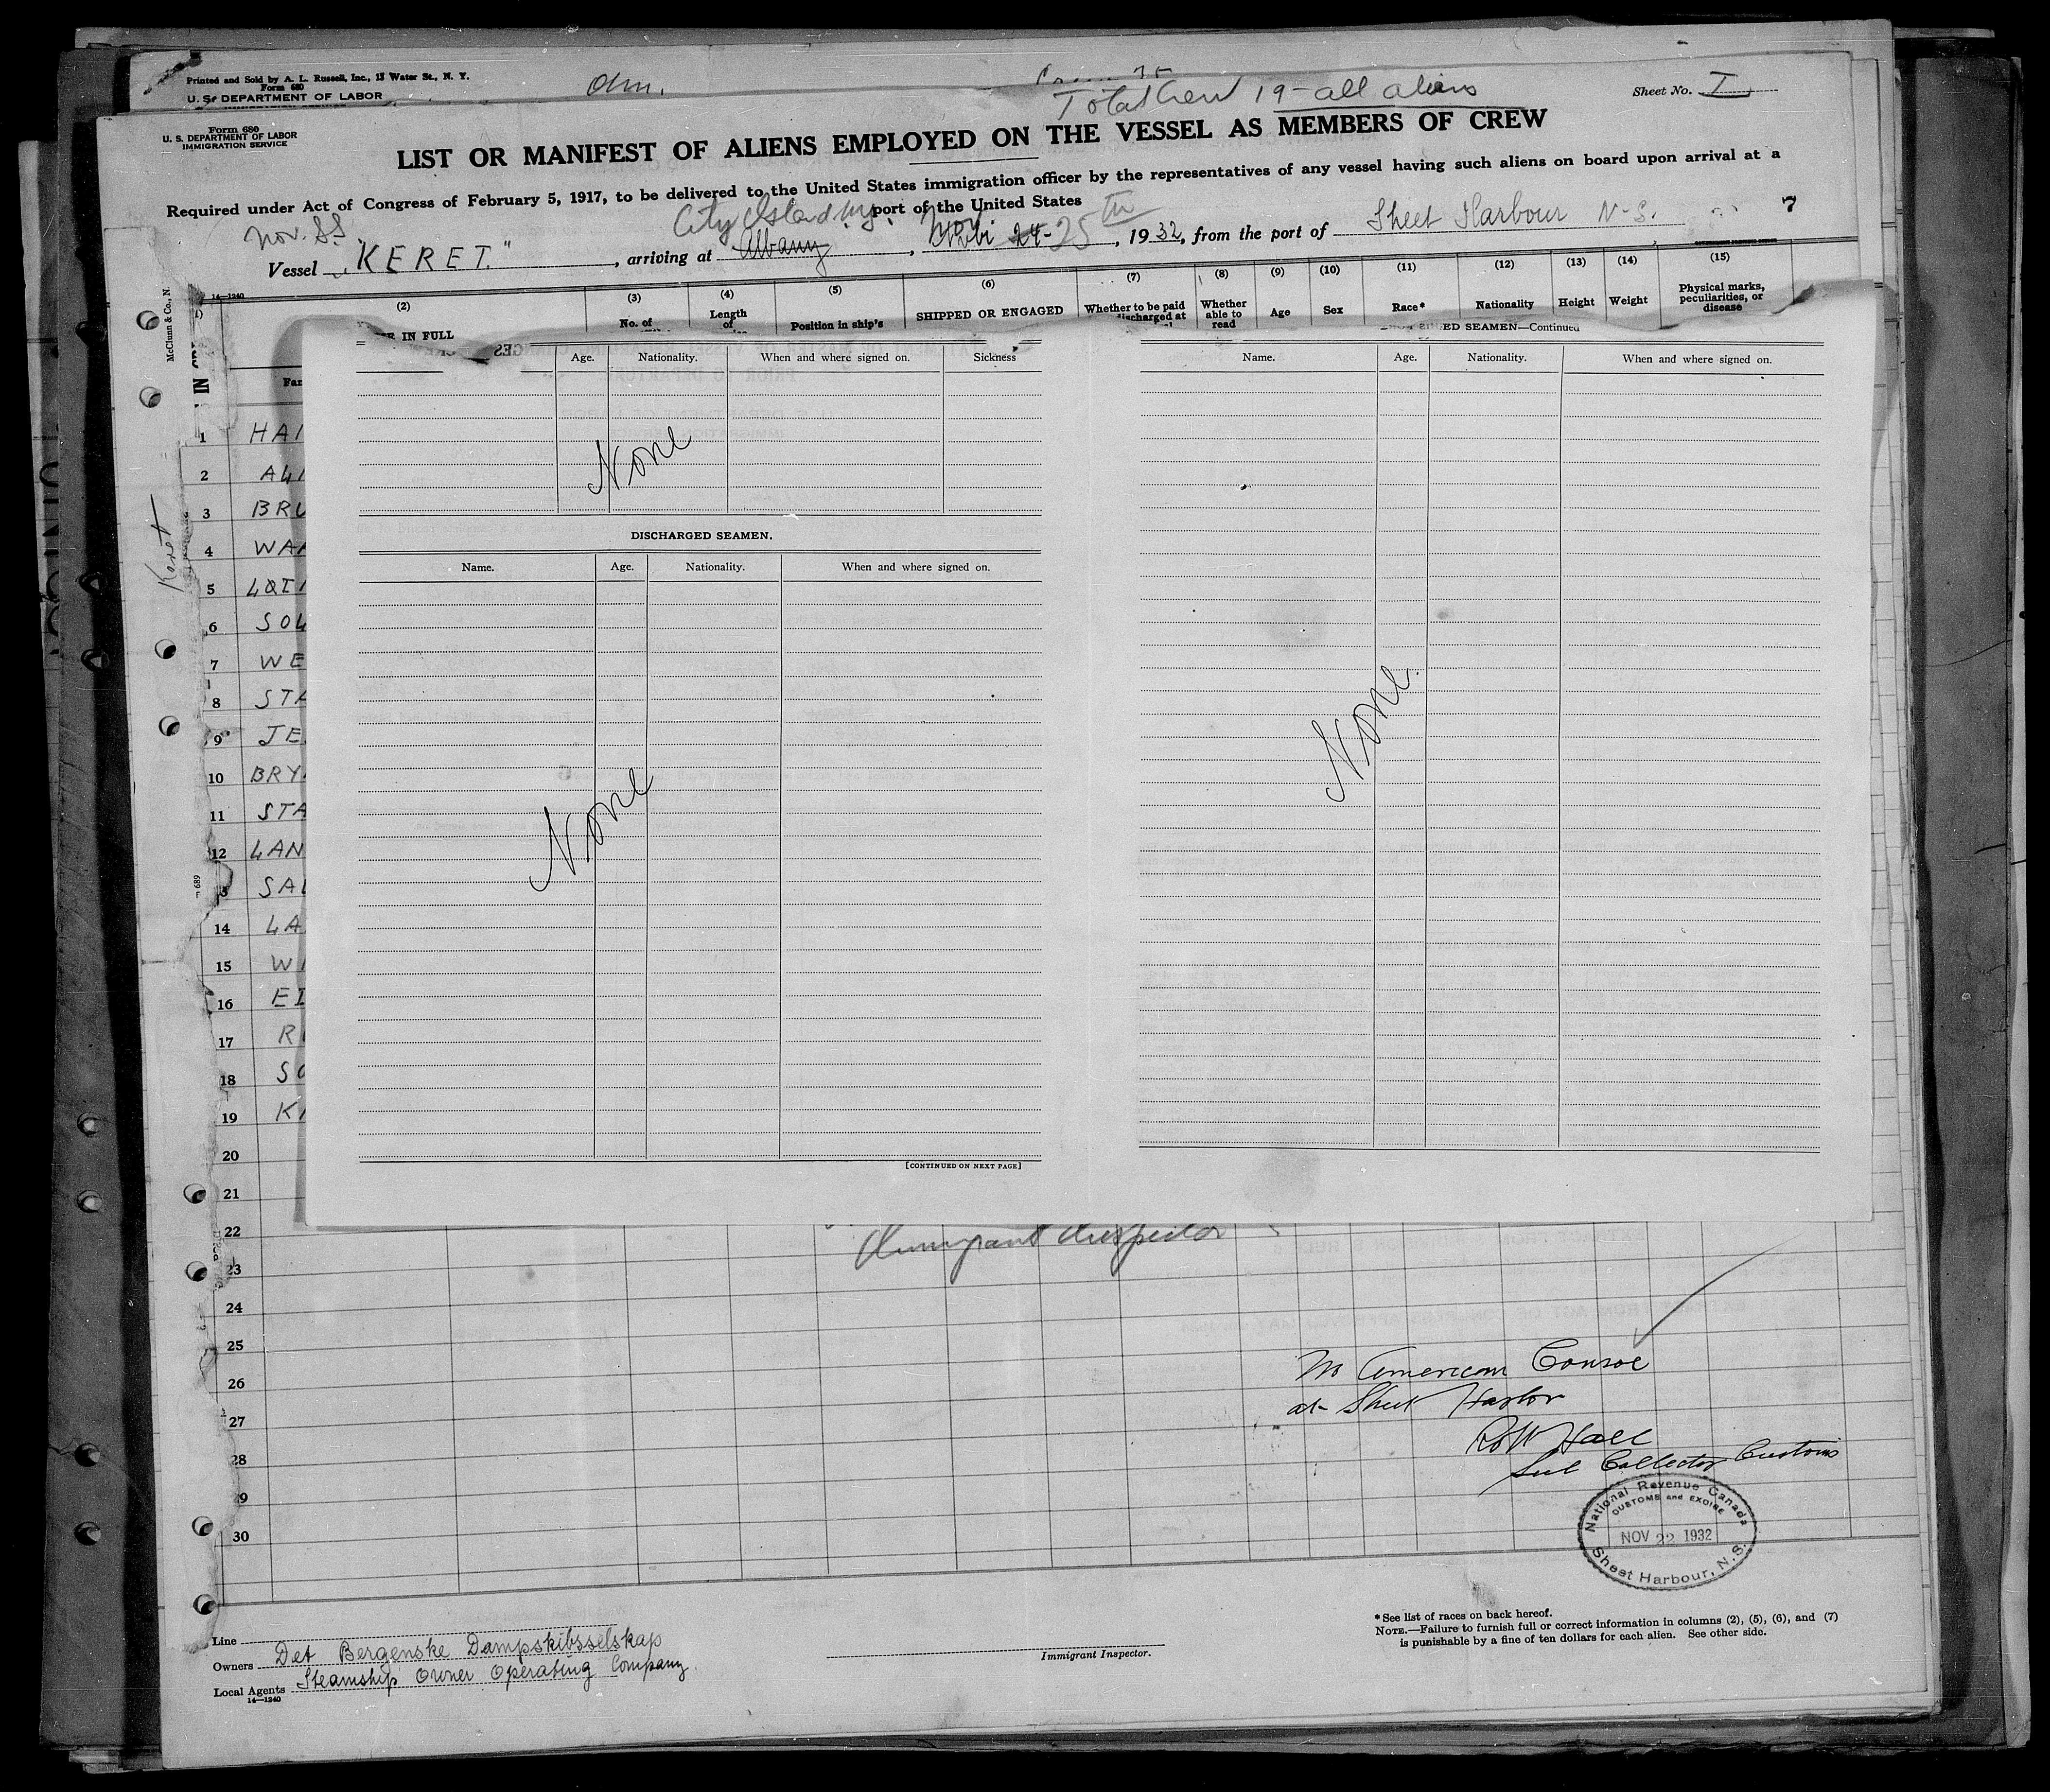 Printed and Sold by A. L. Russell, Inc., 15 Water St., N. Y.
Form 680
U. S. DEPARTMENT OF LABOR
Total Crew 19 - all aliens
Sheet No. I
Form 680
U. S. DEPARTMENT OF LABOR
IMMIGRATION SERVICE
LIST OR MANIFEST OF ALIENS EMPLOYED ON THE VESSEL AS MEMBERS OF CREW
Required under Act of Congress of February 5, 1917, to be delivered to the United States immigration officer by the representatives of any vessel having such aliens on board upon arrival at a
port of the United States
City Island N.Y. Nov. 25th
Nor. SS
Vessel "KERET.", arriving at Albany, 24-, 1932, from the port of Sheet Harbour N-S. 7
14—1240
(2) (3) (4) (5) (6) (7) (8) (9) (10) (11) (12) (13) (14) (15)
IN FULL No. of Length of Position in ship's SHIPPED OR ENGAGED Whether to be paid discharged at Whether able to read Age Sex Race* Nationality Height Weight Physical marks, peculiarities, or disease
McClunn & Co., N.
Keret
Age. Nationality. When and where signed on. Sickness
None
DISCHARGED SEAMEN.
Name. Age. Nationality. When and where signed on.
None
[CONTINUED ON NEXT PAGE]
SEAMEN—Continued
Name. Age. Nationality. When and where signed on.
None.
1 HA
2 AL
3 BRU
4 WA
5
6 SOL
7 WE
8 STA
9 JE
10 BRY
11 STA
12 LAN
3 SAL
14 LA
15 W
16 EI
17 R
18 SO
19 K
20
21
22
23
24
25
26
27
28
29
30
Immigrant Inspector
No American Consul
at Sheet Harbor
Row Hall
Sub Collector Customs
National Revenue Canada
CUSTOMS and EXCISE
NOV 22 1932
Sheet Harbour, N.S.
Line
Owners Det Bergenske Dampskibsselskap
Local Agents Steamship Owner Operating Company.
14—1240
Immigrant Inspector.
* See list of races on back hereof.
NOTE.—Failure to furnish full or correct information in columns (2), (5), (6), and (7)
is punishable by a fine of ten dollars for each alien. See other side.